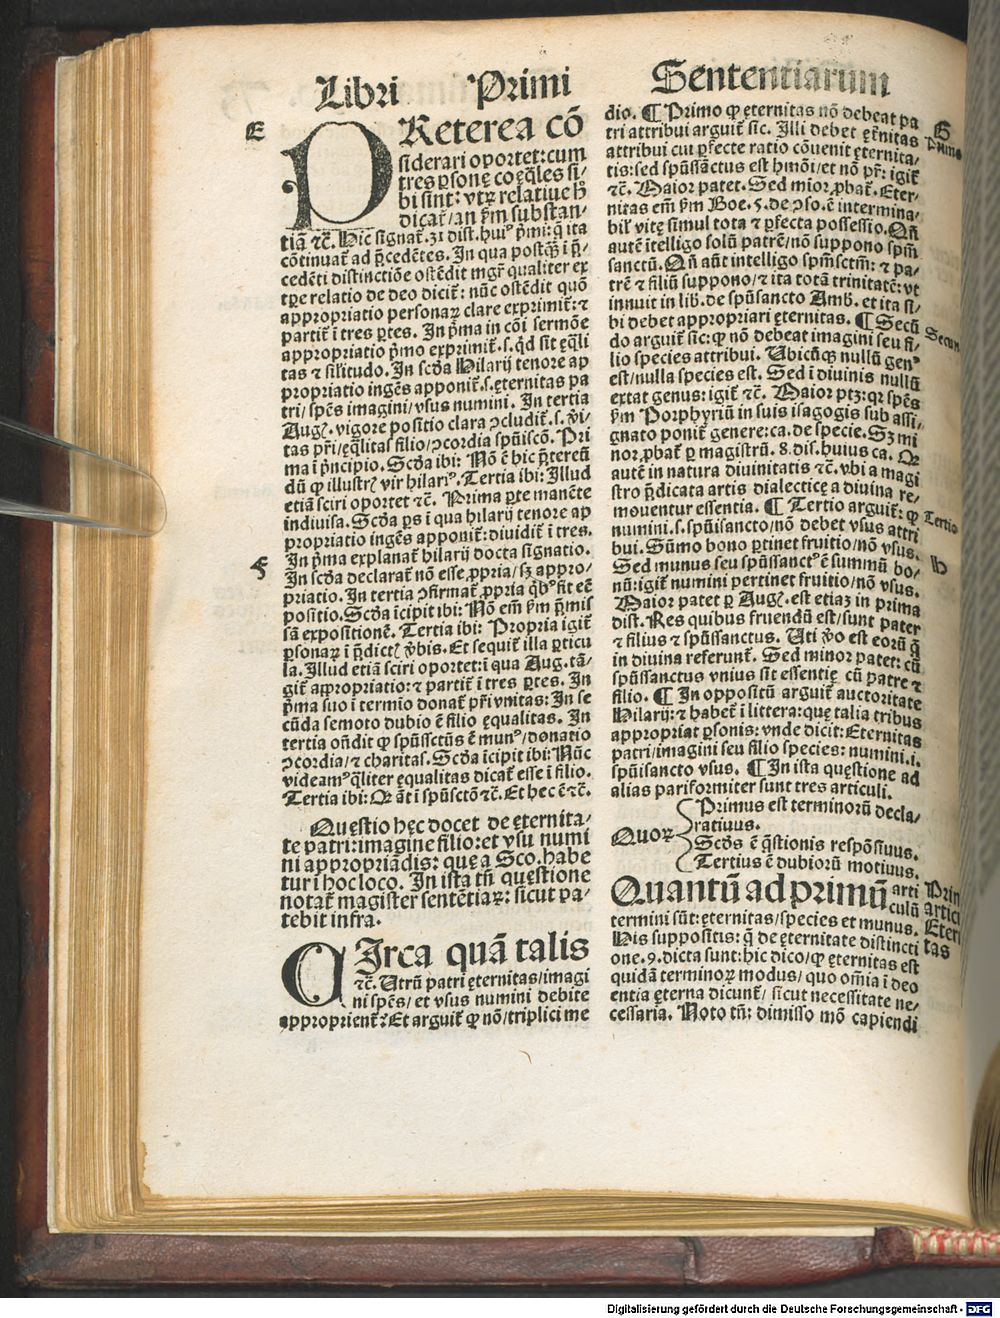 Libri Primi Sententiarum
E
PReterea cō
siderari oportet: cum
tres ꝑsonę coęq̄les si⸗
bi sint: vtꝝ relatiue hꝰ
dicat̄/ an ꝓm substan⸗
tiā ⁊c̄. Hic signat̄.31 dist. huiꝰ pͥmi: q̄ ita
cōtinuat̄ ad p̄cedētes. In qua postq̄ꝫ ī p̄⸗
cedēti distinctiōe ostēdit mgr̄ qualiter ex
tꝑe relatio de deo dicit̄: nūc ostēdit quō
appropriatio personaꝝ clare exprimit̄: ⁊
partit̄ ī tres ꝑtes. In pͥma in cōi sermōe
appropriatio pͥmo exprimit̄.s. q̇d sit ęq̄li
tas ⁊ silitudo. In scd̄a Hilarij tenore ap
propriatio ingēs apponit̄.s. ęternitas pa
tri/ spēs imagini/ vsus numini. In tertia
Augꝰ. vigore positio clara ↄcludit̄.s. vͥni⸗
tas pr̄i/ eq̄litas filio/ ↄcordia spūiscō. Pri
ma ī pͥncipio. Scd̄a ibi: Nō ē hic pͥtereū
dū ꝙ illustrꝭ vir hilariꝰ. Tertia ibi: Illud
etiā sciri oportet ⁊c̄. Prima ꝑte manēte
indiuisa. Scd̄a ꝑs ī qua hilarij tenore ap
propriatio ingēs apponit̄: diuidit̄ ī tres.
F
In pͥma explanat̄ hilarij docta signatio.
In scd̄a declarat̄ nō esse ꝓpria/ sꝫ appro⸗
priatio. In tertia ↄfirmat̄ ꝓpria q̇bꝰ fit eē
positio. Scd̄a īcipit ibi: Nō em̄ ꝓm pͥmis
sā expositionē. Tertia ibi: Propria igit̄
ꝑsonaꝝ ī p̄dictꝭ v̄bis. Et sequit̄ illa ꝑticu
la. Illud etiā sciri oportet: ī qua Aug. tā⸗
git̄ appropriatio: ⁊ partit̄ ī tres ꝑtes. In
pͥma suo ī termio donat̄ pr̄i vnitas: In se
cūda semoto dubio ē filio ęqualitas. In
tertia ondit ꝙ spūssctūs ē munꝰ/ donatio
ↄcordia/ ⁊ charitas. Scd̄a īcipit ibi: Nūc
videamꝰ q̄liter ęqualitas dicat̄ esse ī filio.
Tertia ibi: Qꝛ āt ī spūsctō ⁊c̄. Et hec ē ⁊c̄.
Questio hęc docet de ęternita⸗
te patri: imagine filio: et vsu numi
ni appropriādis: quę a Sco. habe
tur ī hoc loco. In ista tn̄ quęstione
notat̄ magister sentētiaꝝ: sicut pa⸗
tebit infra.
CIrca quā talis
⁊c̄. Utrū patri ęternitas/ imagi
ni spēs/ et vsus numini debite
approprient̄? Et arguit̄ ꝙ nō/ triplici me
dio. ¶ Primo ꝙ ęternitas nō debeat pa
tri attribui arguit̄ sic. Illi debet ęt̄nitas
attribui cui ꝑfecte ratio cōuenit ęternita⸗
tis: sed spūssāctus est hmōi/ et nō pr̄: igit̄
⁊c̄. Maior patet. Sed mior ꝓbat̄. Eter⸗
nitas em̄ ꝓm Boe. 5. de ↄso. ē intermina⸗
bilꝭ vitę simul tota ⁊ ꝑfecta possessio. Qn̄
autē ītelligo solū patrē/ nō suppono spm̄
sanctū. Qn̄ aūt intelligo spm̄sctm̄: ⁊ pa⸗
trē ⁊ filiū suppono/ ⁊ ita totā trinitatē: vt
innuit in lib. de spūsancto Amb. et ita si⸗
bi debet appropriari ęternitas. ¶ Secū
do arguit̄ sic: ꝙ nō debeat imagini seu fi⸗
lio species attribui. Ubicūq̄ꝫ nullū genꝰ
est/ nulla species est. Sed ī diuinis nullū
extat genus: igit̄ ⁊c̄. Maior ptꝫ: qꝛ spēs
ꝓm Porphyriū in suis isagogis sub assi⸗
gnato ponit̄ genere: ca. de specie. Sꝫ mi
nor ꝓbat̄ ꝑ magistrū. 8. dis. huius ca. Qꝛ
autē in natura diuinitatis ⁊c̄. vbi a magi
stro p̄dicata artis dialecticę a diuina re⸗
mouentur essentia. ¶ Tertio arguit̄: ꝙ
numini.s. spūisancto/ nō debet vsus attri
bui. Sūmo bono ꝑtinet fruitio/ nō vsus.
Sed munus seu spūssanctꝰ ē summū bo⸗
nū: igit̄ numini pertinet fruitio/ nō vsus.
Maior patet ꝑ Augꝭ. est etiaꝫ in prima
dist. Res quibus fruendū est/ sunt pater
⁊ filius ⁊ spūssanctus. Uti v̄o est eorū q̄
in diuina referunt̄. Sed minor patet: cū
spūssanctus vnius sit essentię cū patre ⁊
filio. ¶ In oppositū arguit̄ auctoritate
Hilarij: ⁊ habet̄ ī littera: quę talia tribus
appropriat ꝑsonis: vnde dicit: Eternitas
patri/ imagini seu filio species: numini.i.
spūisancto vsus. ¶ In ista quęstione ad
alias pariformiter sunt tres articuli.
Primus est terminorū decla⸗
ratiuus.
Quoꝝ
Scd̄s ē q̄stionis respōsiuus.
Tertius ē dubiorū motiuus.
Quantū ad primū arti
culū
termini sūt: ęternitas/ species et munus.
His suppositis: q̄ de ęternitate distincti
one.9. dicta sunt: hic dico/ ꝙ ęternitas est
quidā terminoꝝ modus/ quo om̄ia ī deo
entia ęterna dicunt̄/ sicut necessitate ne⸗
cessaria. Noto tn̄: dimisso mō capiendi
G
Primo
Secun
Tertio
H
Prim
artic
Eterni
tas
Digitalisierung gefördert durch die Deutsche Forschungsgemeinschaft - DFG